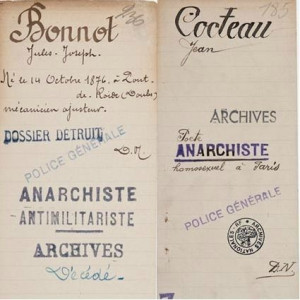 Bonnot
9/36
Jules-Joseph.
Né le 14 Octobre 1876, à Pont-
de-Roide (Doubs)
mécanicien ajusteur.
DOSSIER DÉTRUIT
D.N
POLICE GÉNÉRALE
ANARCHISTE
ANTIMILITARISTE
ARCHIVES
Décédé.
Cocteau
185
Jean
ARCHIVES
Poète
ANARCHISTE
homosexuel à Paris
POLICE GÉNÉRALE
ARCHIVES NATIONALES
D.N.